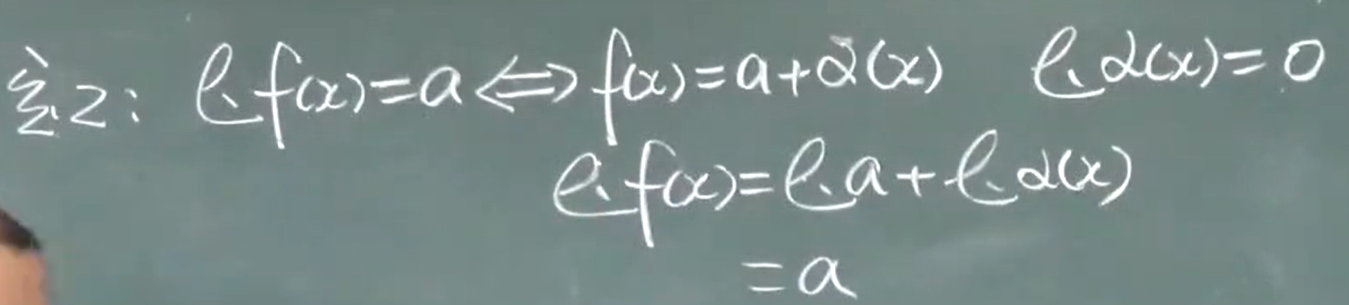 定2: lim f(x)=a⇔f(x)=a+α(x) lim α(x)=0
lim f(x)=lim a+lim α(x)
=a